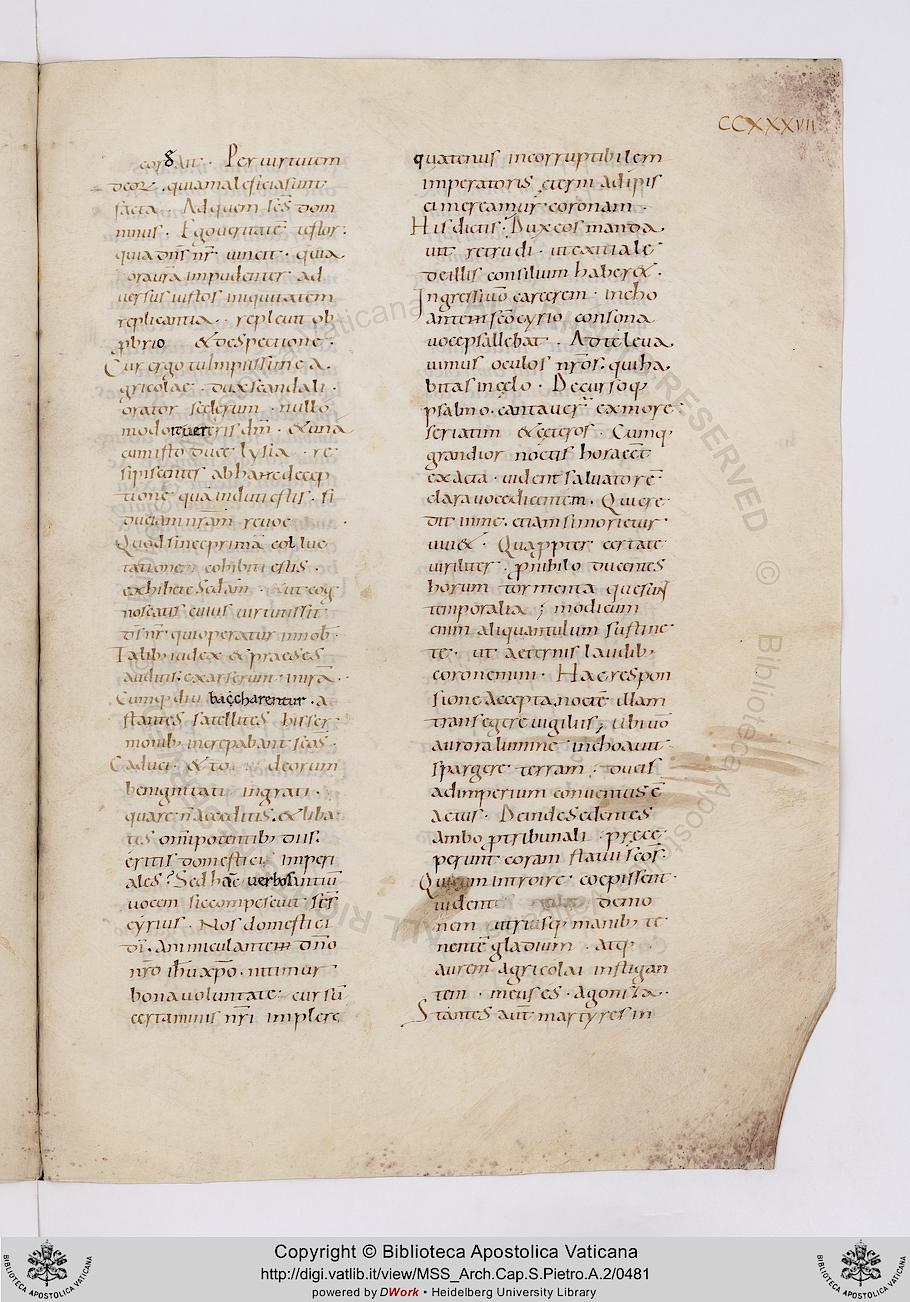 CCXXXVII
Per virtutem
deoꝝ . quia maleficia sunt
facta . Ad quem scs dom
ninus . Ego veritatē
quia dn̄s nr̄ vincit . quia
ad
versus iustos iniquitatem
replicantia . replevit ob
ꝓbrio & despectione .
Cur ergo tu impiissime a
gricolae . dux scandali .
orator scelerum . nullo
modo reverteris ad dm̄ . & una
cum isto duce lysia . re
sipiscentes ab hac decep
tione qua induti estis . si
revoc
Quod sinec prima colluc
tatione cohibiti estis .
exhibete secdam . & ut cog
noscatis cuius virtutis sit
ds̄ nr̄ qui operatur in nob .
Talib iudex & praeses
auditis . exarserunt in ira .
Cumq diu baccharentur . a
stantes satellites his ser
monib increpabant scōs .
Caduci . & deorum
benignitati ingrati .
quare n̄ acceditis . & liba
tis omīpotentib diis .
eritis domestici imperi
ales ? Sed hāc verbosantiū
vocem sic compescuit scs
cyrius . Nos domestici
dī . amniculante dn̄o
nr̄o ihū xp̄o . nitimur
bona voluntate cursū
certaminis nr̄i implere
quatenus incorruptibilem
imperatoris aeterni adipis
ci mereamur coronam .
His dictis . Dux eos manda
vit retrudi . ut exitiale
de illis consilium haber& .
Ingressi vō carcerem . incho
ante scō cyrio consona
voce psallebat . Ad te leva
vimus oculos nr̄os . qui ha
bitas in cęlo . Decursoq
psalmo . cantaver ex more
seriatim & ceteros . Cumq
grandior noctis hora eēt
exacta . vident salvatorē
clara voce dicentem . Qui cre
dit in me . etiam si mortuus
viv& . Quapropter certate
viriliter . ꝓ nihilo ducentes
horum tormenta que sunt
temporalia ; modicum
enim aliquantulum sustine
te . ut aeternis laudib
coronemini . Hac respon
sione accepta . noctē illam
transegere vigiliis ; Ubi vō
aurora lumine inchoavit
spargere terram . ducis
ad imperium conventus ē
actus . Deinde sedentes
ambo ꝓ tribunali . prece
perunt coram statui scōs .
Qui cum introire coepissent .
vident demo
nem utrisq manib te
nentē gladium . atq
aurem agricolai instigan
tem . meus es . agoniza .
Stantes aut martyres in
Copyright © Biblioteca Apostolica Vaticana
http://digi.vatlib.it/view/MSS_Arch.Cap.S.Pietro.A.2/0481
powered by DWork • Heidelberg University Library